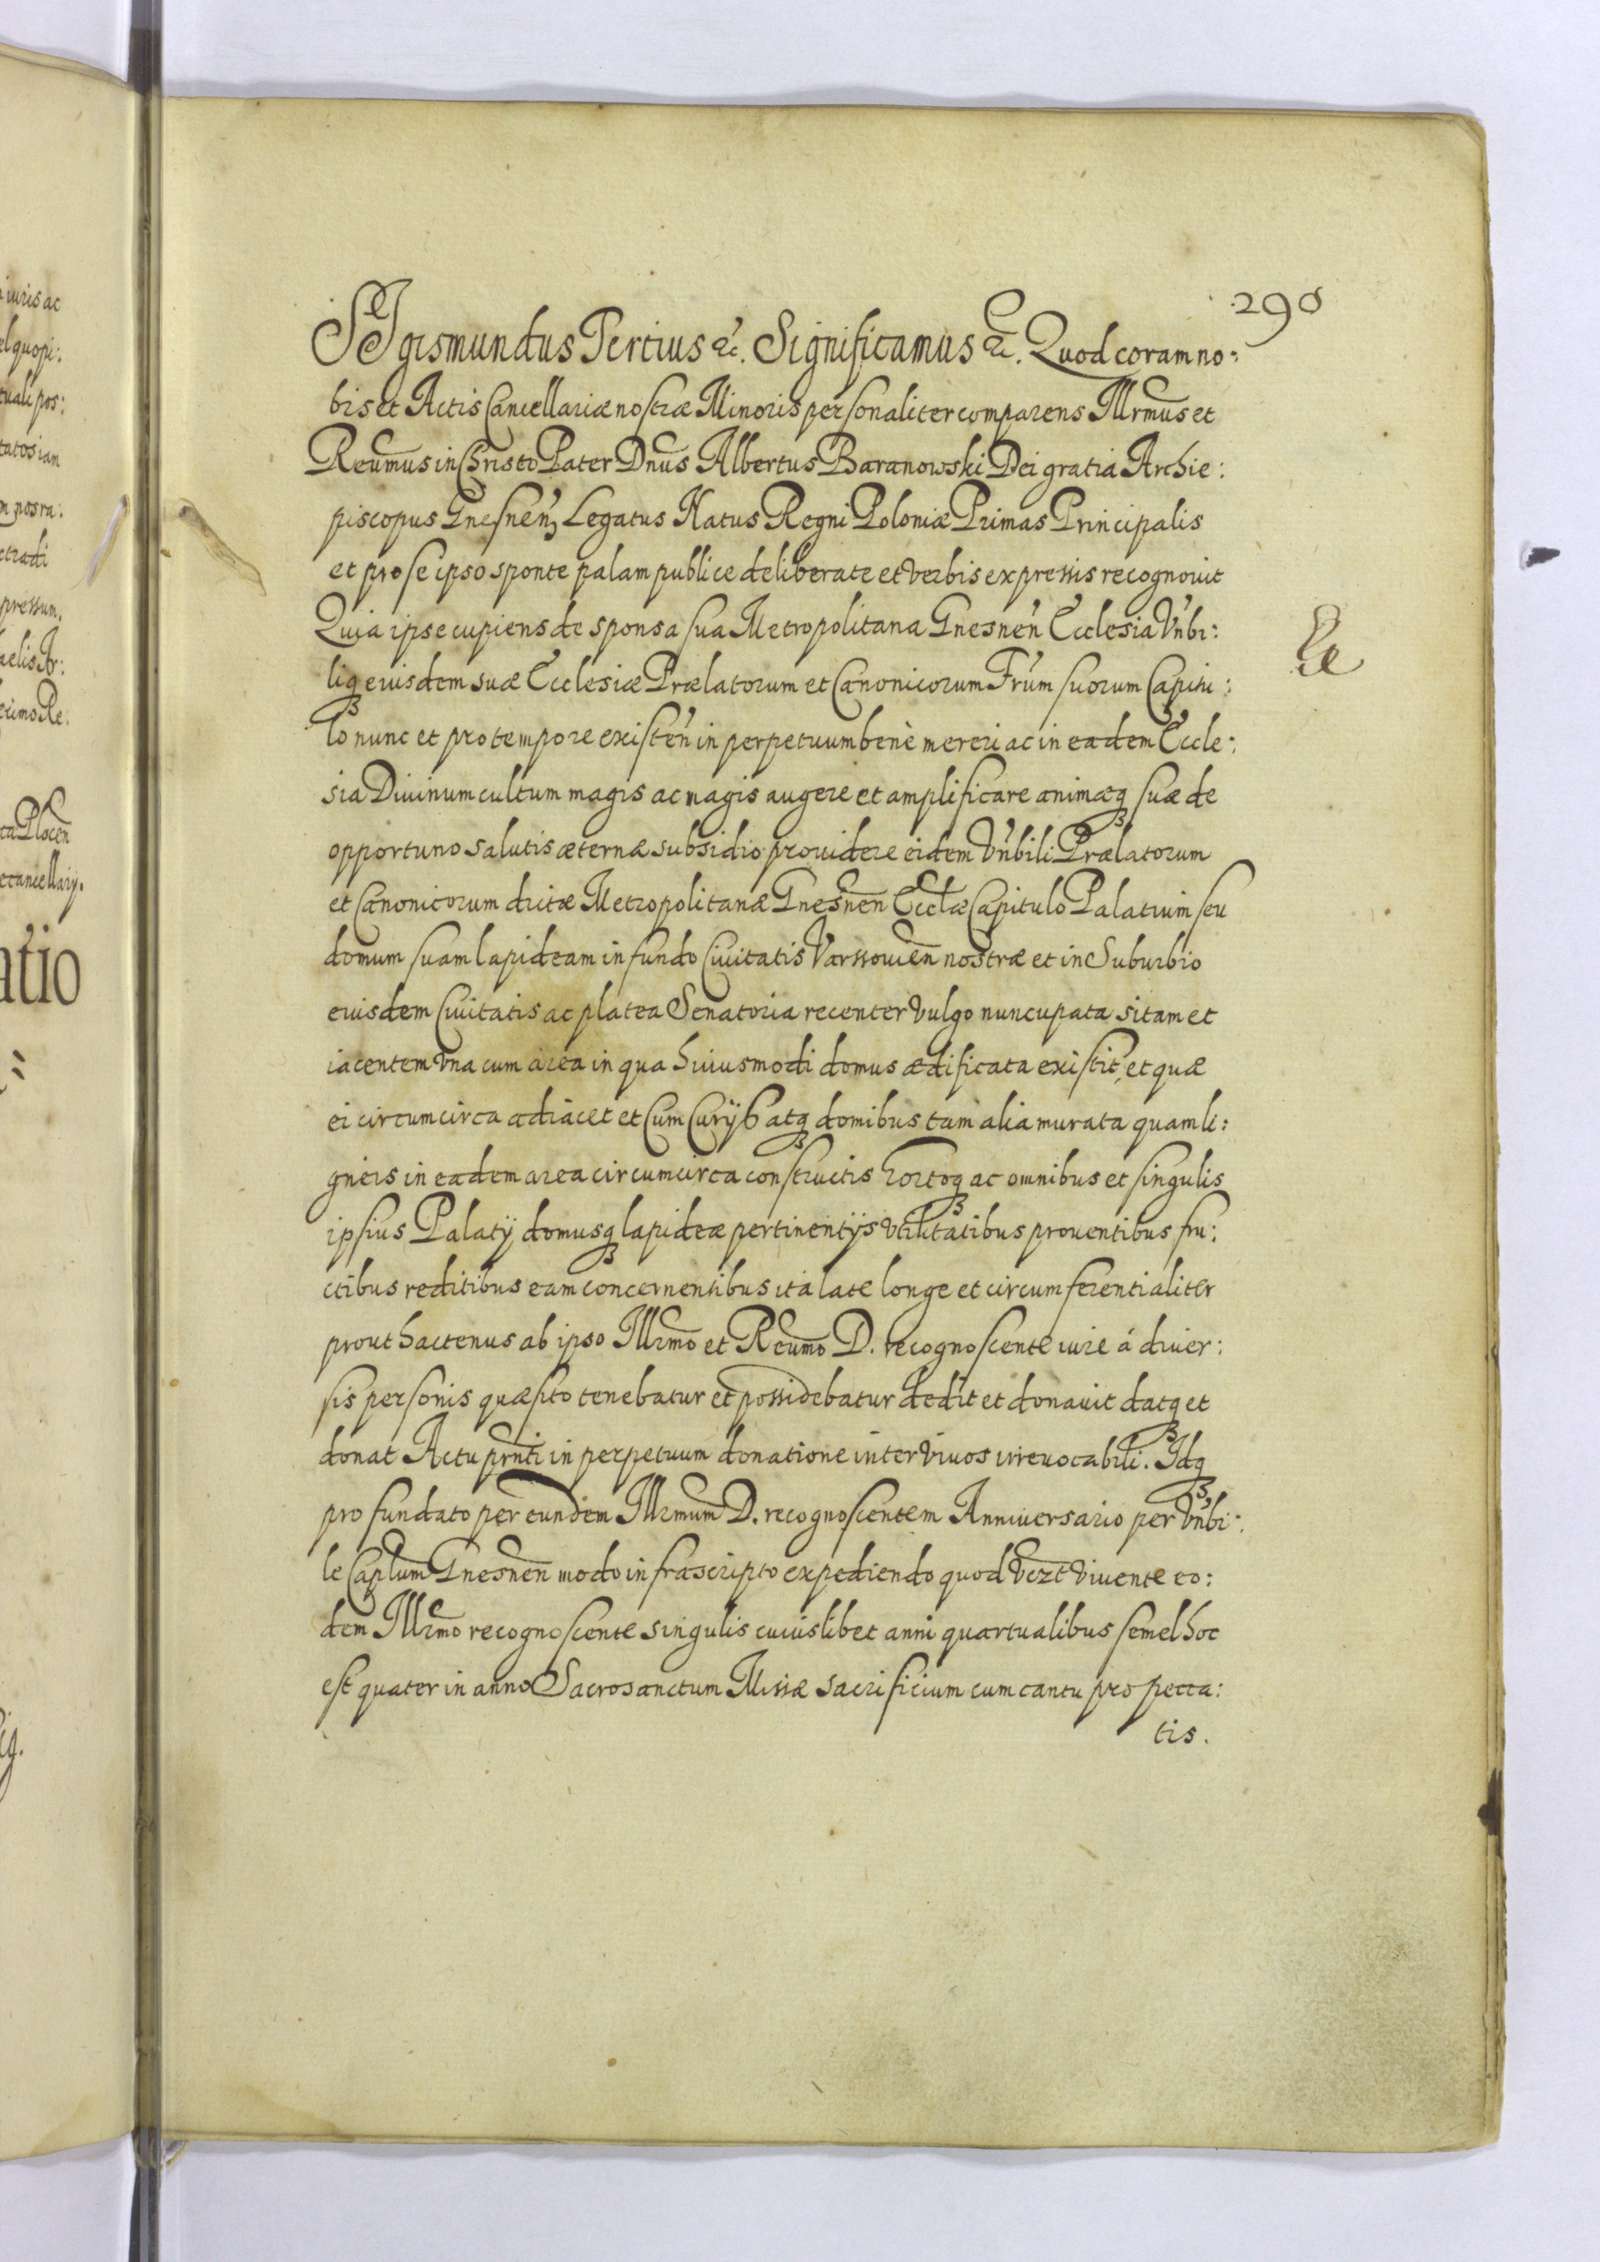 290
SIgismundus Tertius &c. Significamus &c. Quod coram no:
bis et Actis Cancellariæ nostræ Minoris personaliter comparens Illrmus et
Reumus in Christo Pater Dnus Albertus Baranowski Dei gratia Archie:
piscopus Gnesnen Legatus Natus Regni Poloniæ Primas Principalis
et pro se ipso sponte palam publice deliberate et verbis expressis recognouit
Quia ipse cupiens de sponsa sua Metropolitana Gnesnen Ecclesia Vnbi:
liq eiusdem suæ Ecclesiæ Prælatorum et Canonicorum Frum suorum Capitu:
lo nunc et pro tempore existen in perpetuum benè mereri ac in eadem Eccle:
sia Diuinum cultum magis ac magis augere et amplificare animæq suæ de
opportuno salutis æternæ subsidio prouidere eidem Vnbili Prælatorum
et Canonicorum dictæ Metropolitanæ Gnesnen Ecclæ Capitulo Palatium seu
domum suam lapideam in fundo Ciuitatis Varssouien nostræ et in Suburbio
eiusdem Ciuitatis ac platea Senatoria recenter vulgo nuncupata sitam et
iacentem vna cum area in qua huiusmodi domus ædificata existit, et quæ
ei circumcirca adiacet et Cum Curijs atq domibus tam alia murata quam li:
gneis in eadem area circumcirca constructis hortoq ac omnibus et singulis
ipsius Palatij domusq lapideæ pertinentijs vtilitatibus prouentibus fru:
ctibus reditibus eam concernentibus ita late longe et circumferentialiter
prout hactenus ab ipso Illrmo et Reumo D. recognoscente iure á diuer:
sis personis quæsito tenebatur et possidebatur dedit et donauit datq et
donat Actu prnti in perpetuum donatione inter viuos irreuocabili. Idq
pro fundato per eundem Illrmum D. recognoscentem Anniuersario per Vnbi:
le Caplum Gnesnen modo infrascripto expediendo quod vczt viuente eo:
dem Illrmo recognoscente singulis cuiuslibet anni quartualibus semel hoc
est quater in anno Sacrosanctum Missæ sacrificium cum cantu pro pecca:
tis.